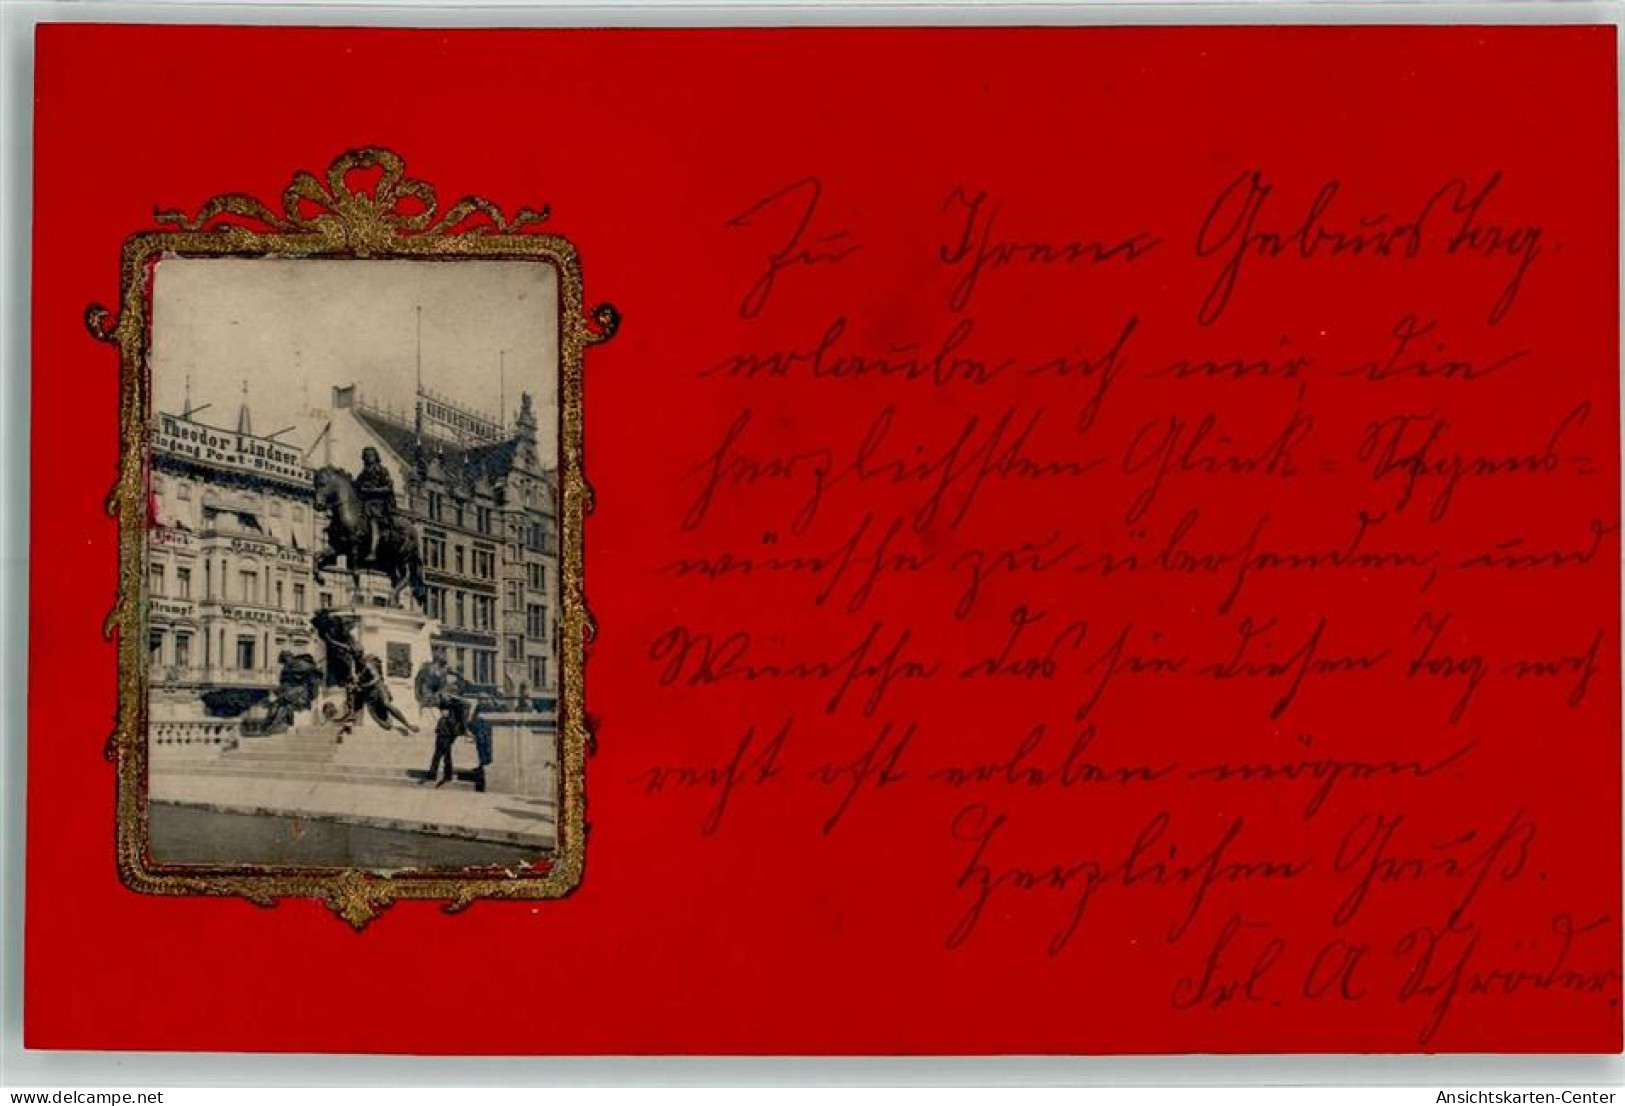 Theodor Lindner
Eingang Post-Strasse
KURFÜRSTENHAUS
Garn-Fabrik
Strumpf-Waaren Fabrik
Zu Ihrem Geburstag
erlaube ich mir, die
herzlichsten Glück-Segens-
wünsche zu übersenden, und
Wünsche das sie diesen Tag noch
recht oft erleben mögen
Herzlichen Gruß.
Frl. A Schröder.
delcampe.net
Ansichtskarten-Center